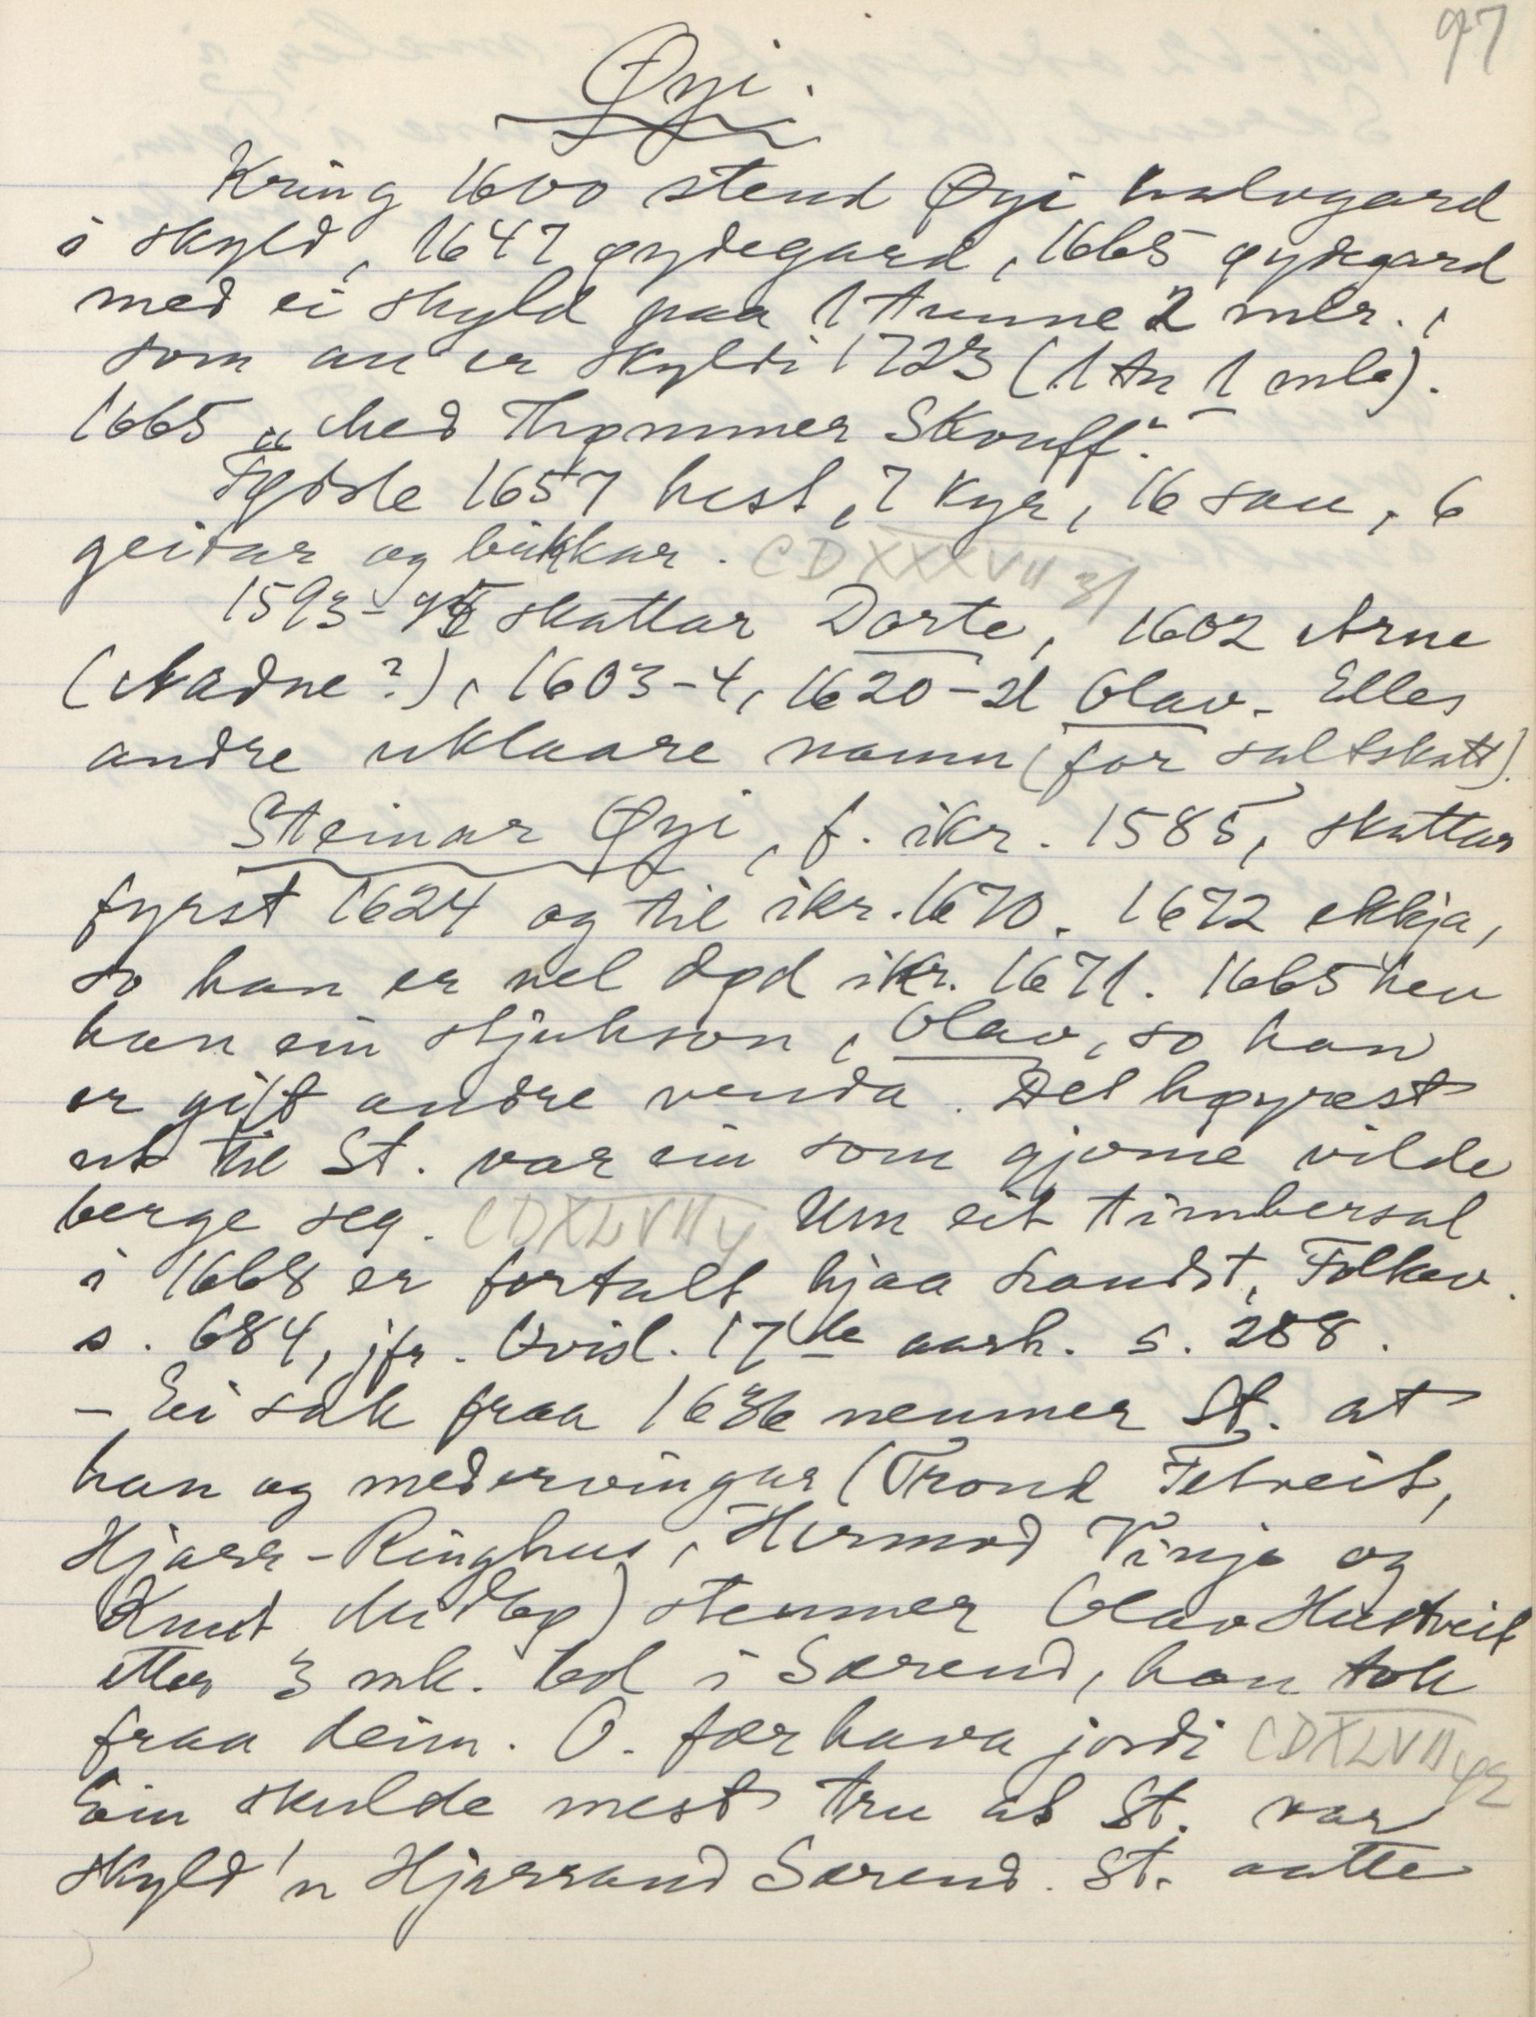 97
Øyi.
Kring 1600 stend Øyi halvgard
i skyld, 1647 øydegard, 1665 øydegard
med ei skyld paa 1 tunne 2 mlr.,
som au er skyldi 1723 (1 tn 1 mle).
1665 „Med Thømmer Skouff“.
Fødde 1657 hest, 7 kyr, 16 sau, 6
geitar og bukkar. CDXXXVII 31
1593-95 skattar Dorte, 1602 Arne
(Aadne?), 1603-4, 1620-21 Olav. Elles
andre uklaare namn (for saltskatt).
Steinar Øyi, f. ikr. 1585, skattar
fyrst 1624 og til ikr. 1670. 1672 ekkja,
so han er vel død ikr. 1671. 1665 hev
han ein stjukson, Olav, so han
er gift andre venda. Det høyrest
ut til St. var ein som gjerne vilde
berge seg. CDXLVII y Um eit timbersal
i 1668 er fortalt hjaa Landst. Folkev.
s. 684, jfr. Kvisl. 17de aarh. s. 288.
- Ei sak fraa 1636 nemner St. at
han og medervingar (Trond Fetveit,
Hjarr-Ringhus, Hermod Vinje og
Knut Midbø) stemner Olav Hustveit
etter 3 mk. bol i Særend, han tok
fraa deim. O. fær hava jordi CDXLVII 42
Ein skulde mest tru at St. var
skyld 'n Hjarrand Særend. St. aatte